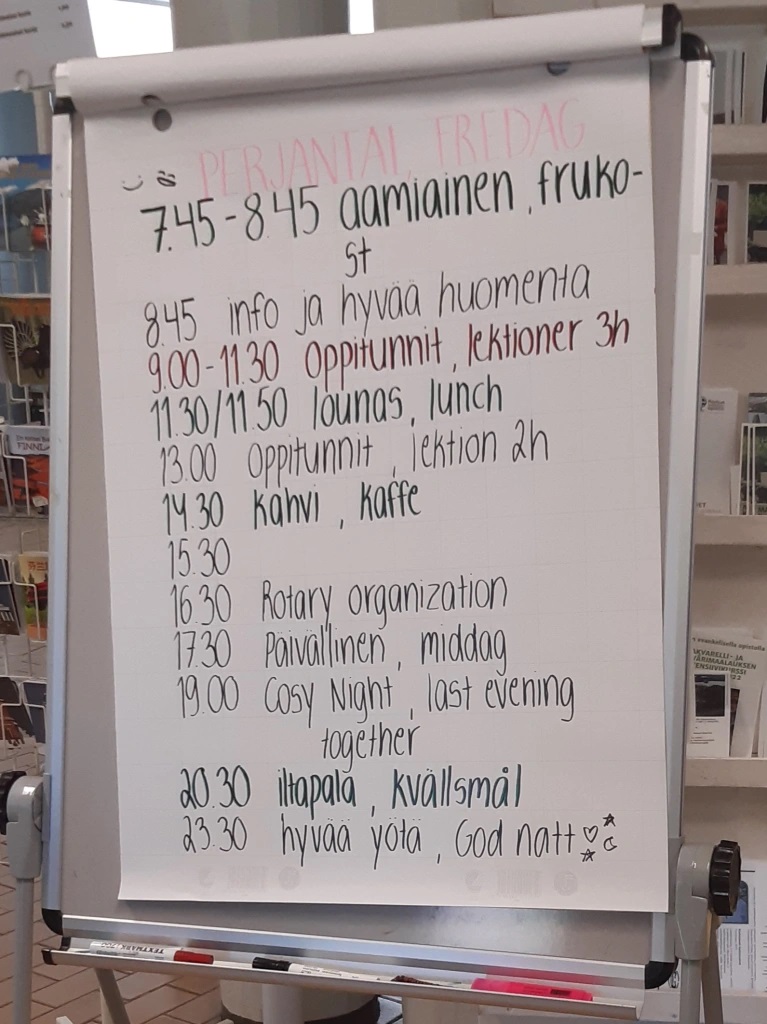 PERJANTAI, FREDAG
7.45-8.45 aamiainen, fruko-
st
8.45 info ja hyvää huomenta
9.00-11.30 Oppitunnit, lektioner 3h
11.30/11.50 lounas, lunch
13.00 Oppitunnit, lektion 2h
14.30 Kahvi, Kaffe
15.30
16.30 Rotary organization
17.30 Päivällinen, middag
19.00 Cosy Night, last evening
together
20.30 iltapala, Kvällsmål
23.30 hyvää yötä, God natt
TEXTMARK 700
FINNL